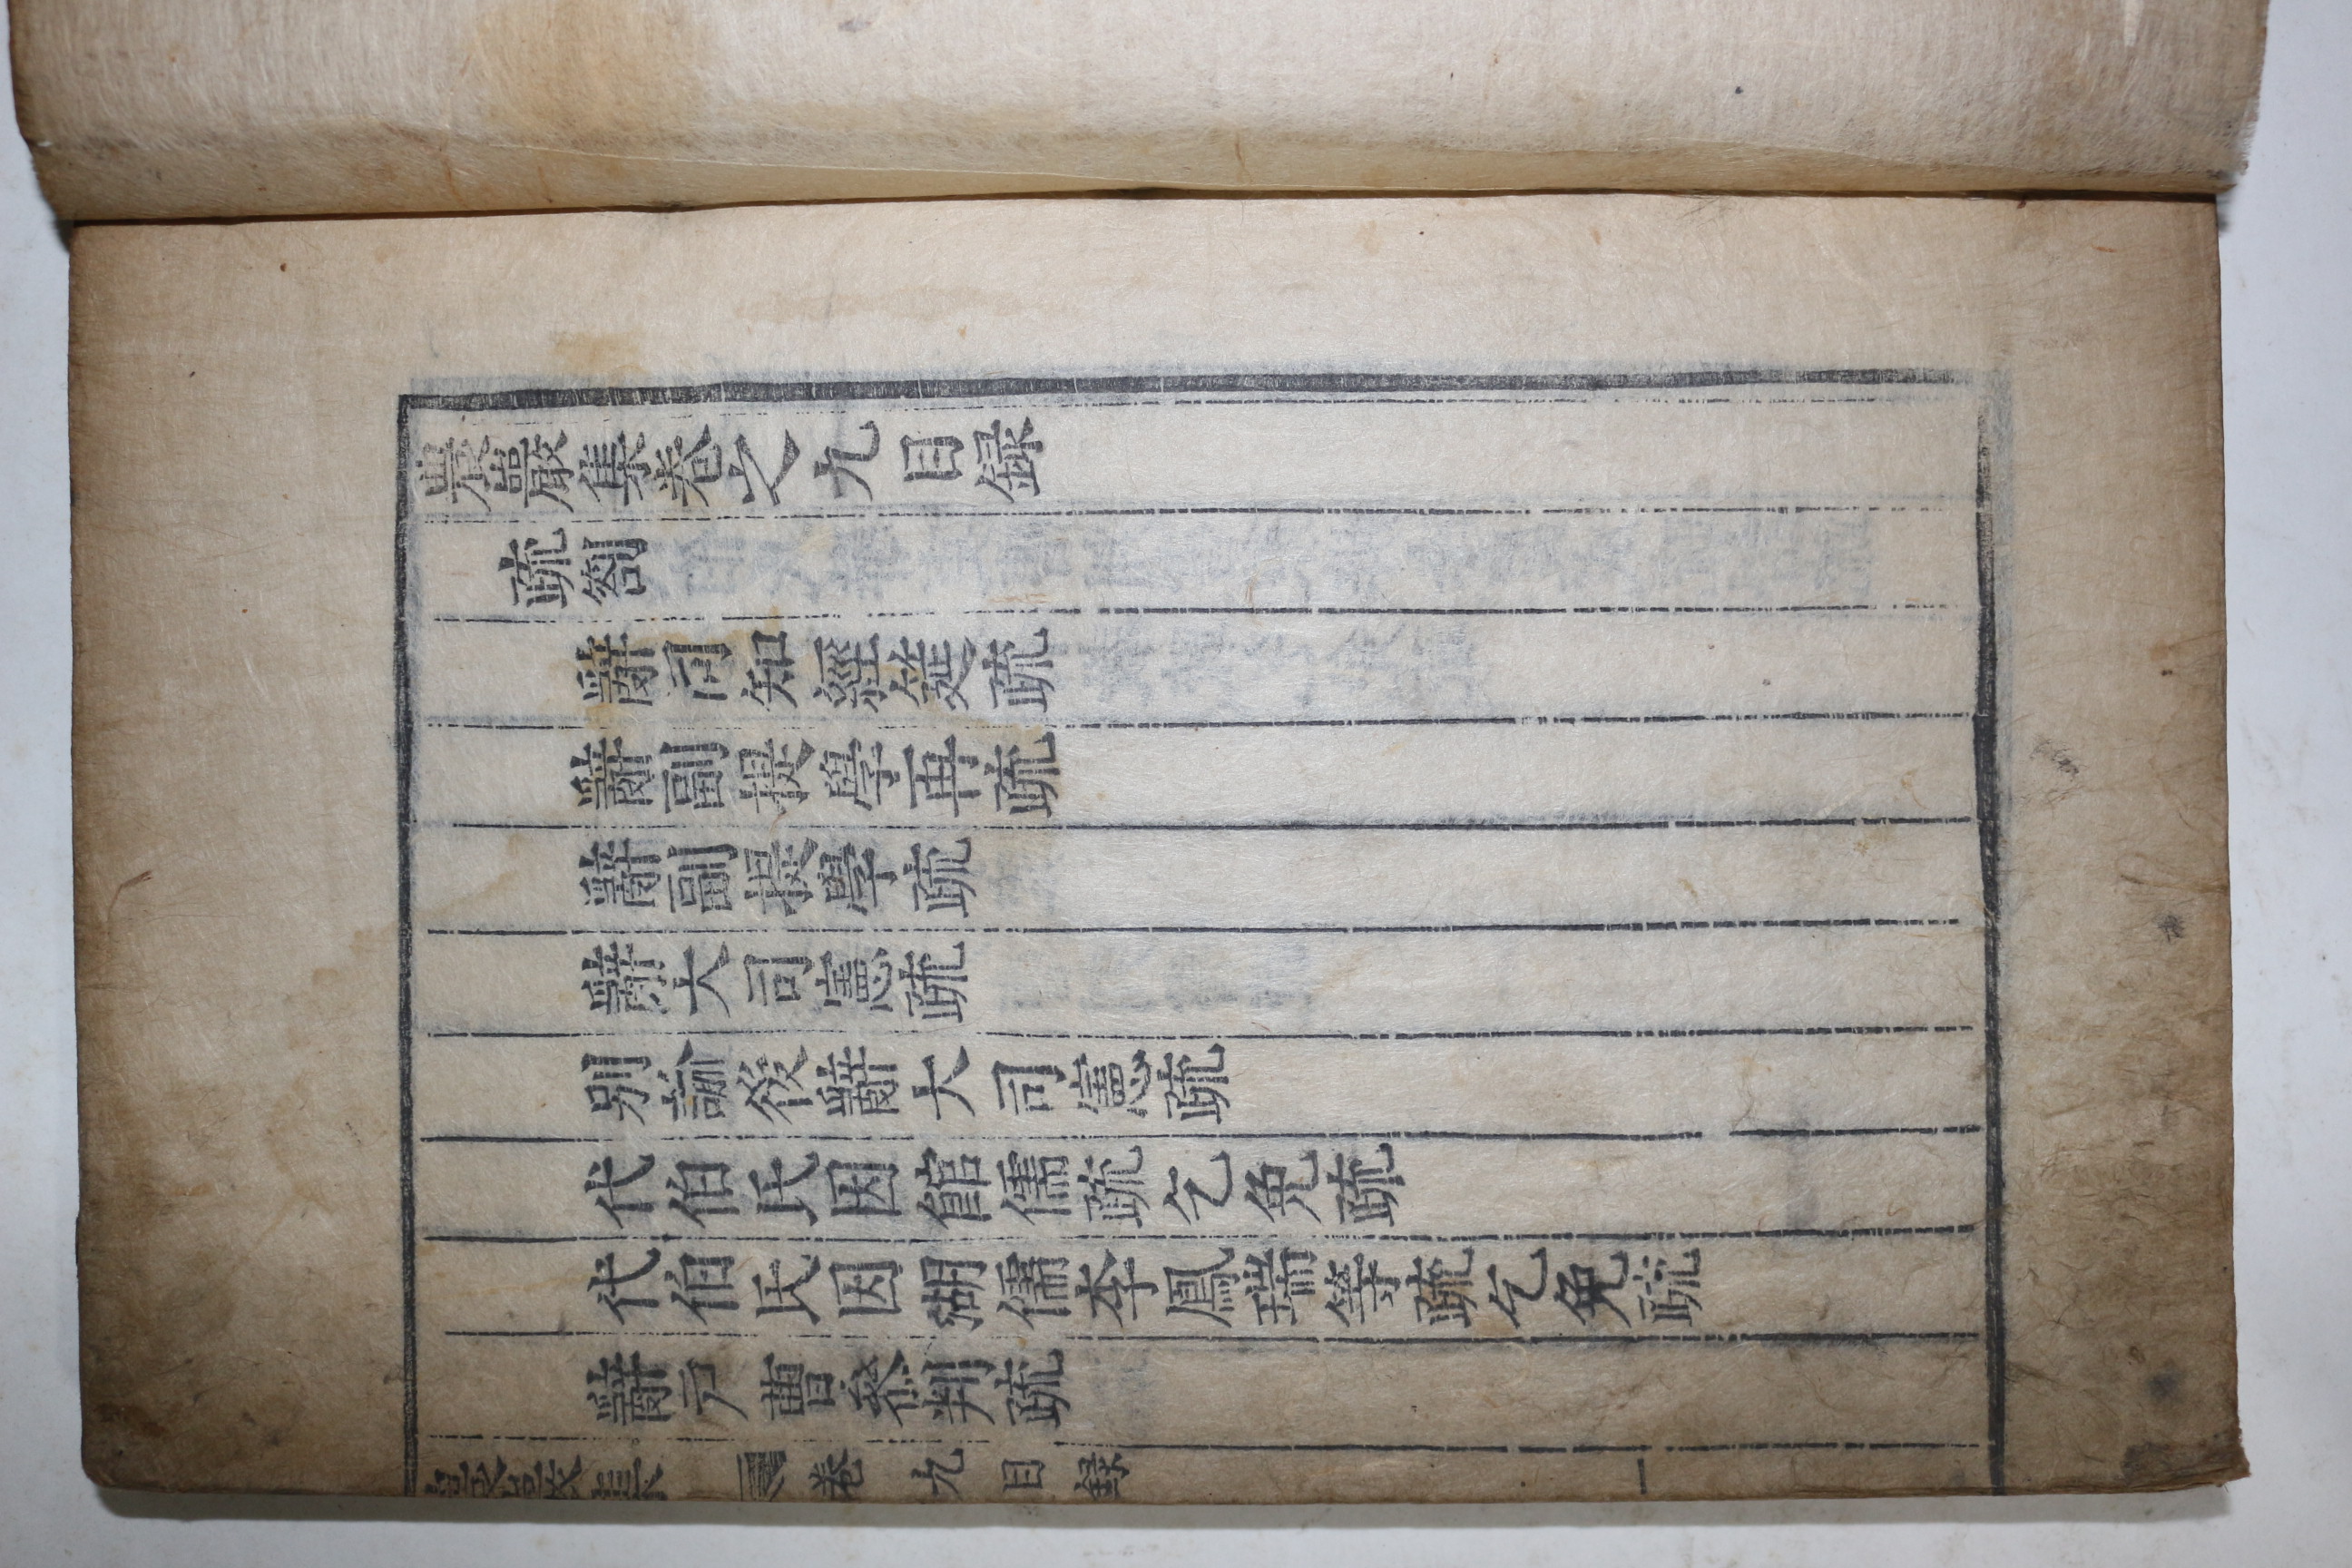 農巖集卷之九目録
疏劄
辭同知經筵疏
辭副提學再疏
辭副提學疏
辭大司憲疏
別諭後辭大司憲疏
代伯氏因館儒疏乞免疏
代伯氏因湖儒李鳳瑞等疏乞免疏
辭戶曹參判疏
農巖集 卷九目録 一